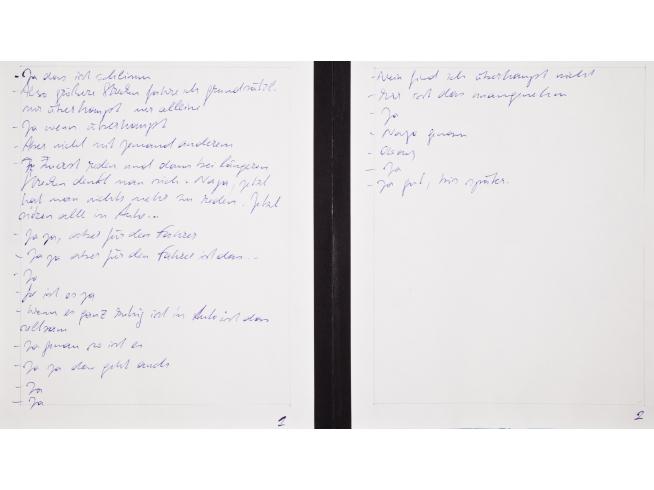 - Ja das ist schlimm
- Also größere Strecken fahre ich grundsätzl.
nur überhaupt nur alleine
- Ja wenn überhaupt
- Aber nicht mit jemand anderem
- Zuerst reden und dann bei längeren
Strecken denkt man sich - Naja, jetzt
hat man nichts mehr zu reden. Jetzt
sitzen alle im Auto...
- Ja ja, aber für den Fahrer
- Ja ja aber für den Fahrer ist das...
- Ja
- Ja ist es ja
- Wenn es ganz ruhig ist im Auto ist das
seltsam
- Ja genau so ist es
- Ja ja dem geht auch
- Ja
- Ja
1
- Nein find ich überhaupt nicht
- Mir ist das unangenehm
- Ja
- Naja genau
- Okay
- Ja
- Ja gut, bis später.
2